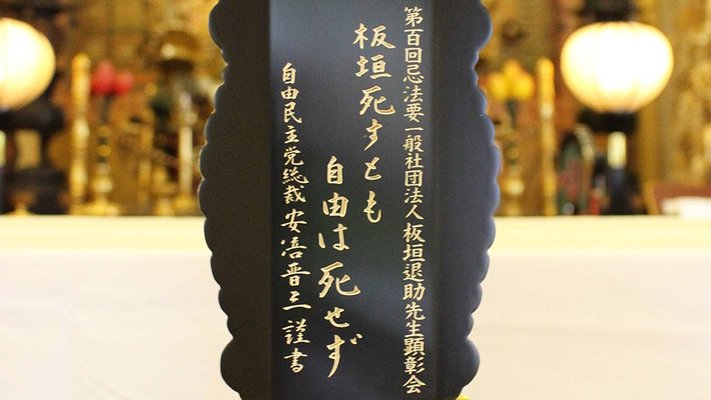 第百回忌法要一般社団法人板垣退助先生顕彰会
板垣死すとも
自由は死せず
自由民主党総裁安倍晋三謹書